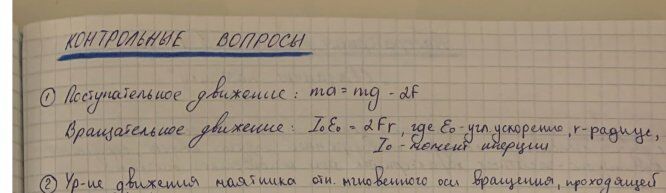 КОНТРОЛЬНЫЕ ВОПРОСЫ
① Поступательное движение: ma = mg - 2F
Вращательное движение: I₀ε₀ = 2Fr, где ε₀ - угл. ускорение, r - радиус,
I₀ - момент инерции
② Ур-ие движения маятника отн. мгновенного оси вращения, проходящей